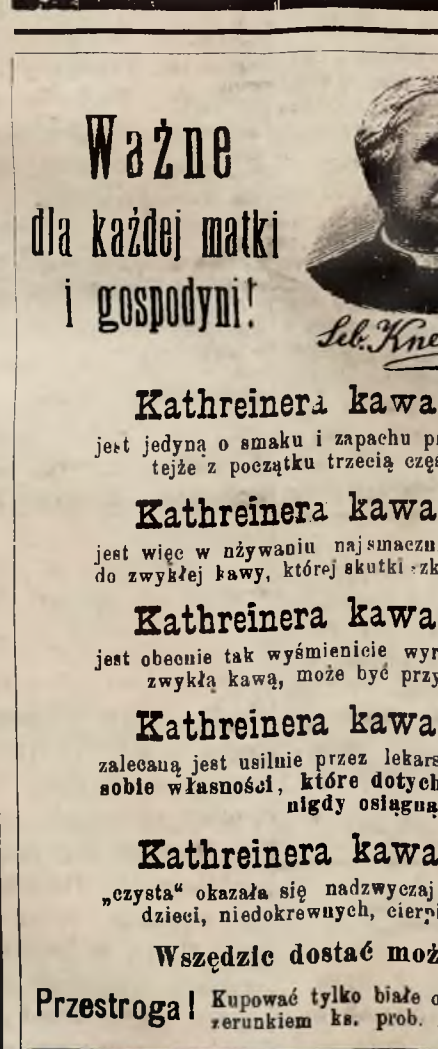 Ważne
dla każdej matki
i gospodyni!
Seb. Kne
Kathreinera kawa
jest jedyną o smaku i zapachu p
tejże z początku trzecią częś
Kathreinera kawa
jest więc w używaniu najsmaczn
do zwykłej kawy, której skutki szk
Kathreinera kawa
jest obecnie tak wyśmienicie wyr
zwykłą kawą, może być przy
Kathreinera kawa
zalecaną jest usilnie przez lekars
sobie własności, które dotych
nigdy osiągną
Kathreinera kawa
„czysta“ okazała się nadzwyczaj
dzieci, niedokrewnych, cierpi
Wszędzie dostać moż
Przestroga! Kupować tylko białe
zerunkiem ks. prob.